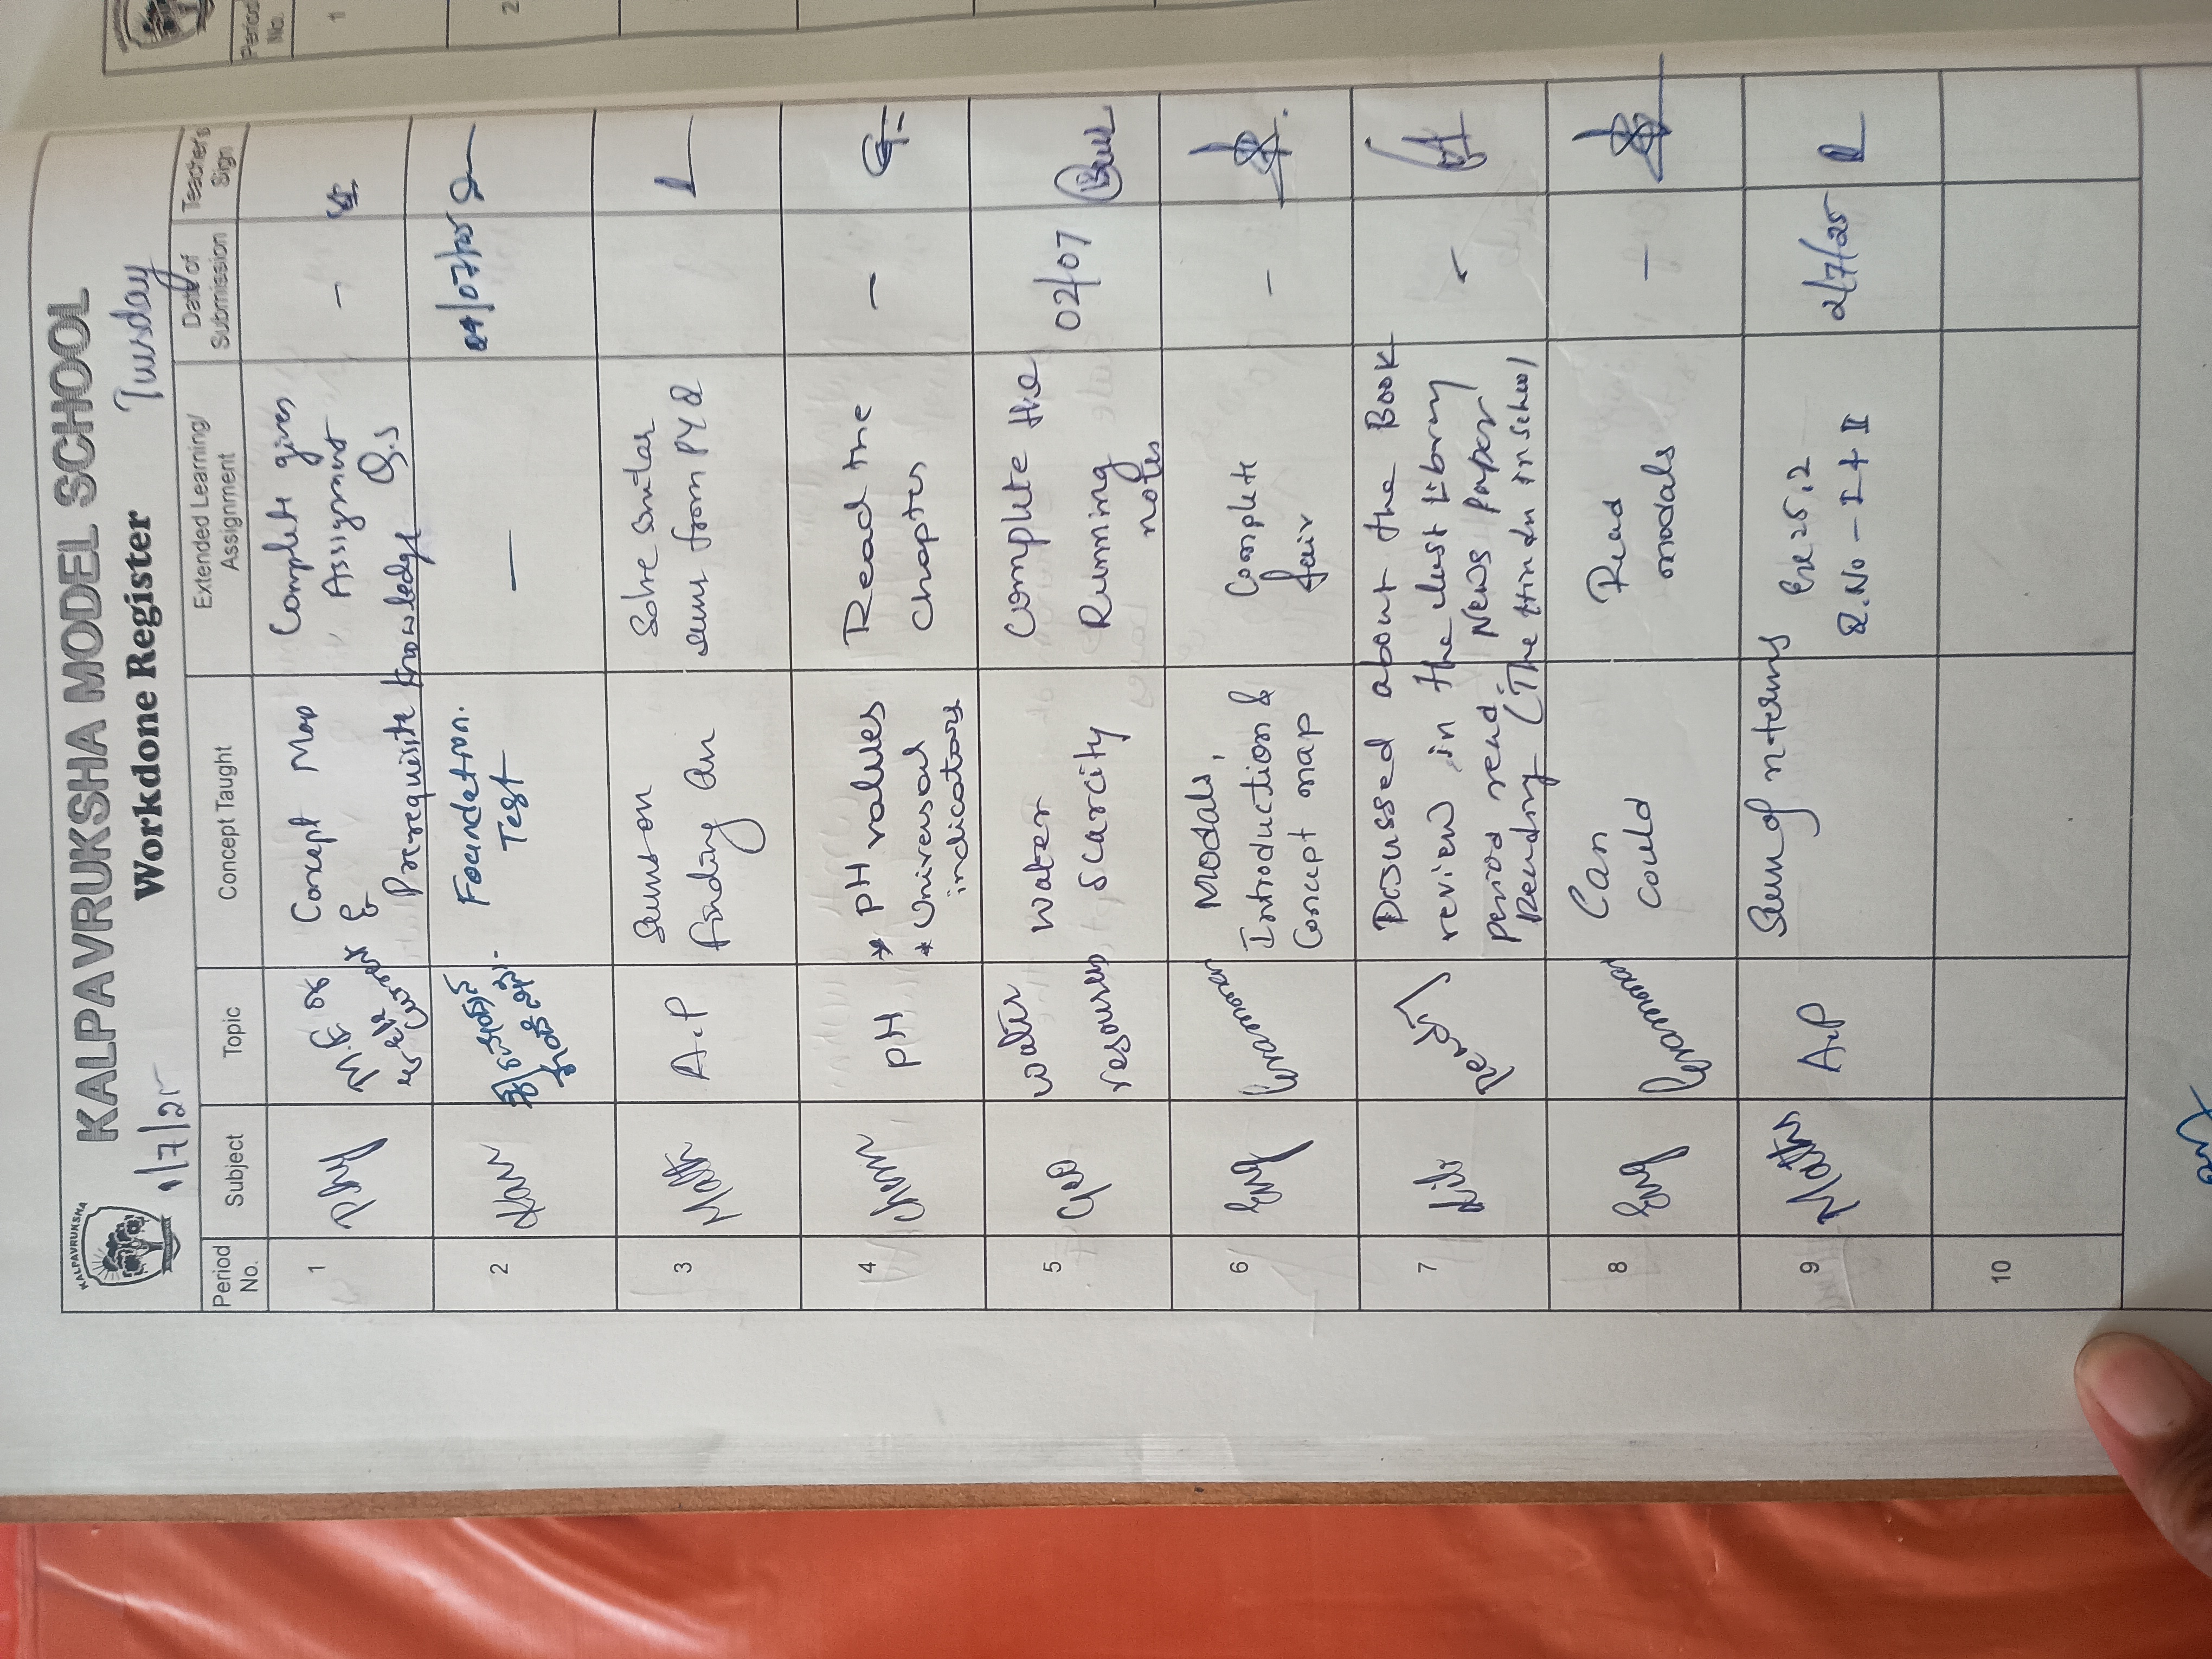 KALPAVRUKSHA
KALPAVRUKSHA MODEL SCHOOL
1/7/25 Workdone Register Tuesday
Period No. Subject Topic Concept Taught Extended Learning/ Assignment Date of Submission Teacher's Sign
1 Phy M.E of Concept Map Complete given –
& Assignment
Prerequisite knowledge Q.s
2 Kan Foundation. — 04/07/25
Test
3 Math A.P Sums on Solve similar
finding an sums from PYQ
4 Chem pH * pH values Read the –
* Universal chapter
indicators
5 Geo Water Water Complete the 02/07
resources scarcity Running
notes
6 Eng Grammar Modals, Complete –
Introduction & fair
Concept map
7 Lib Discussed about the Book
review in the last library
period read News paper
Reading (The Hindu in school)
8 Eng Grammar Can Read –
could modals
9 Maths A.P Sum of n terms Ex 25.2 2/7/25
Q.No - I + II
10
Period No.
1
2